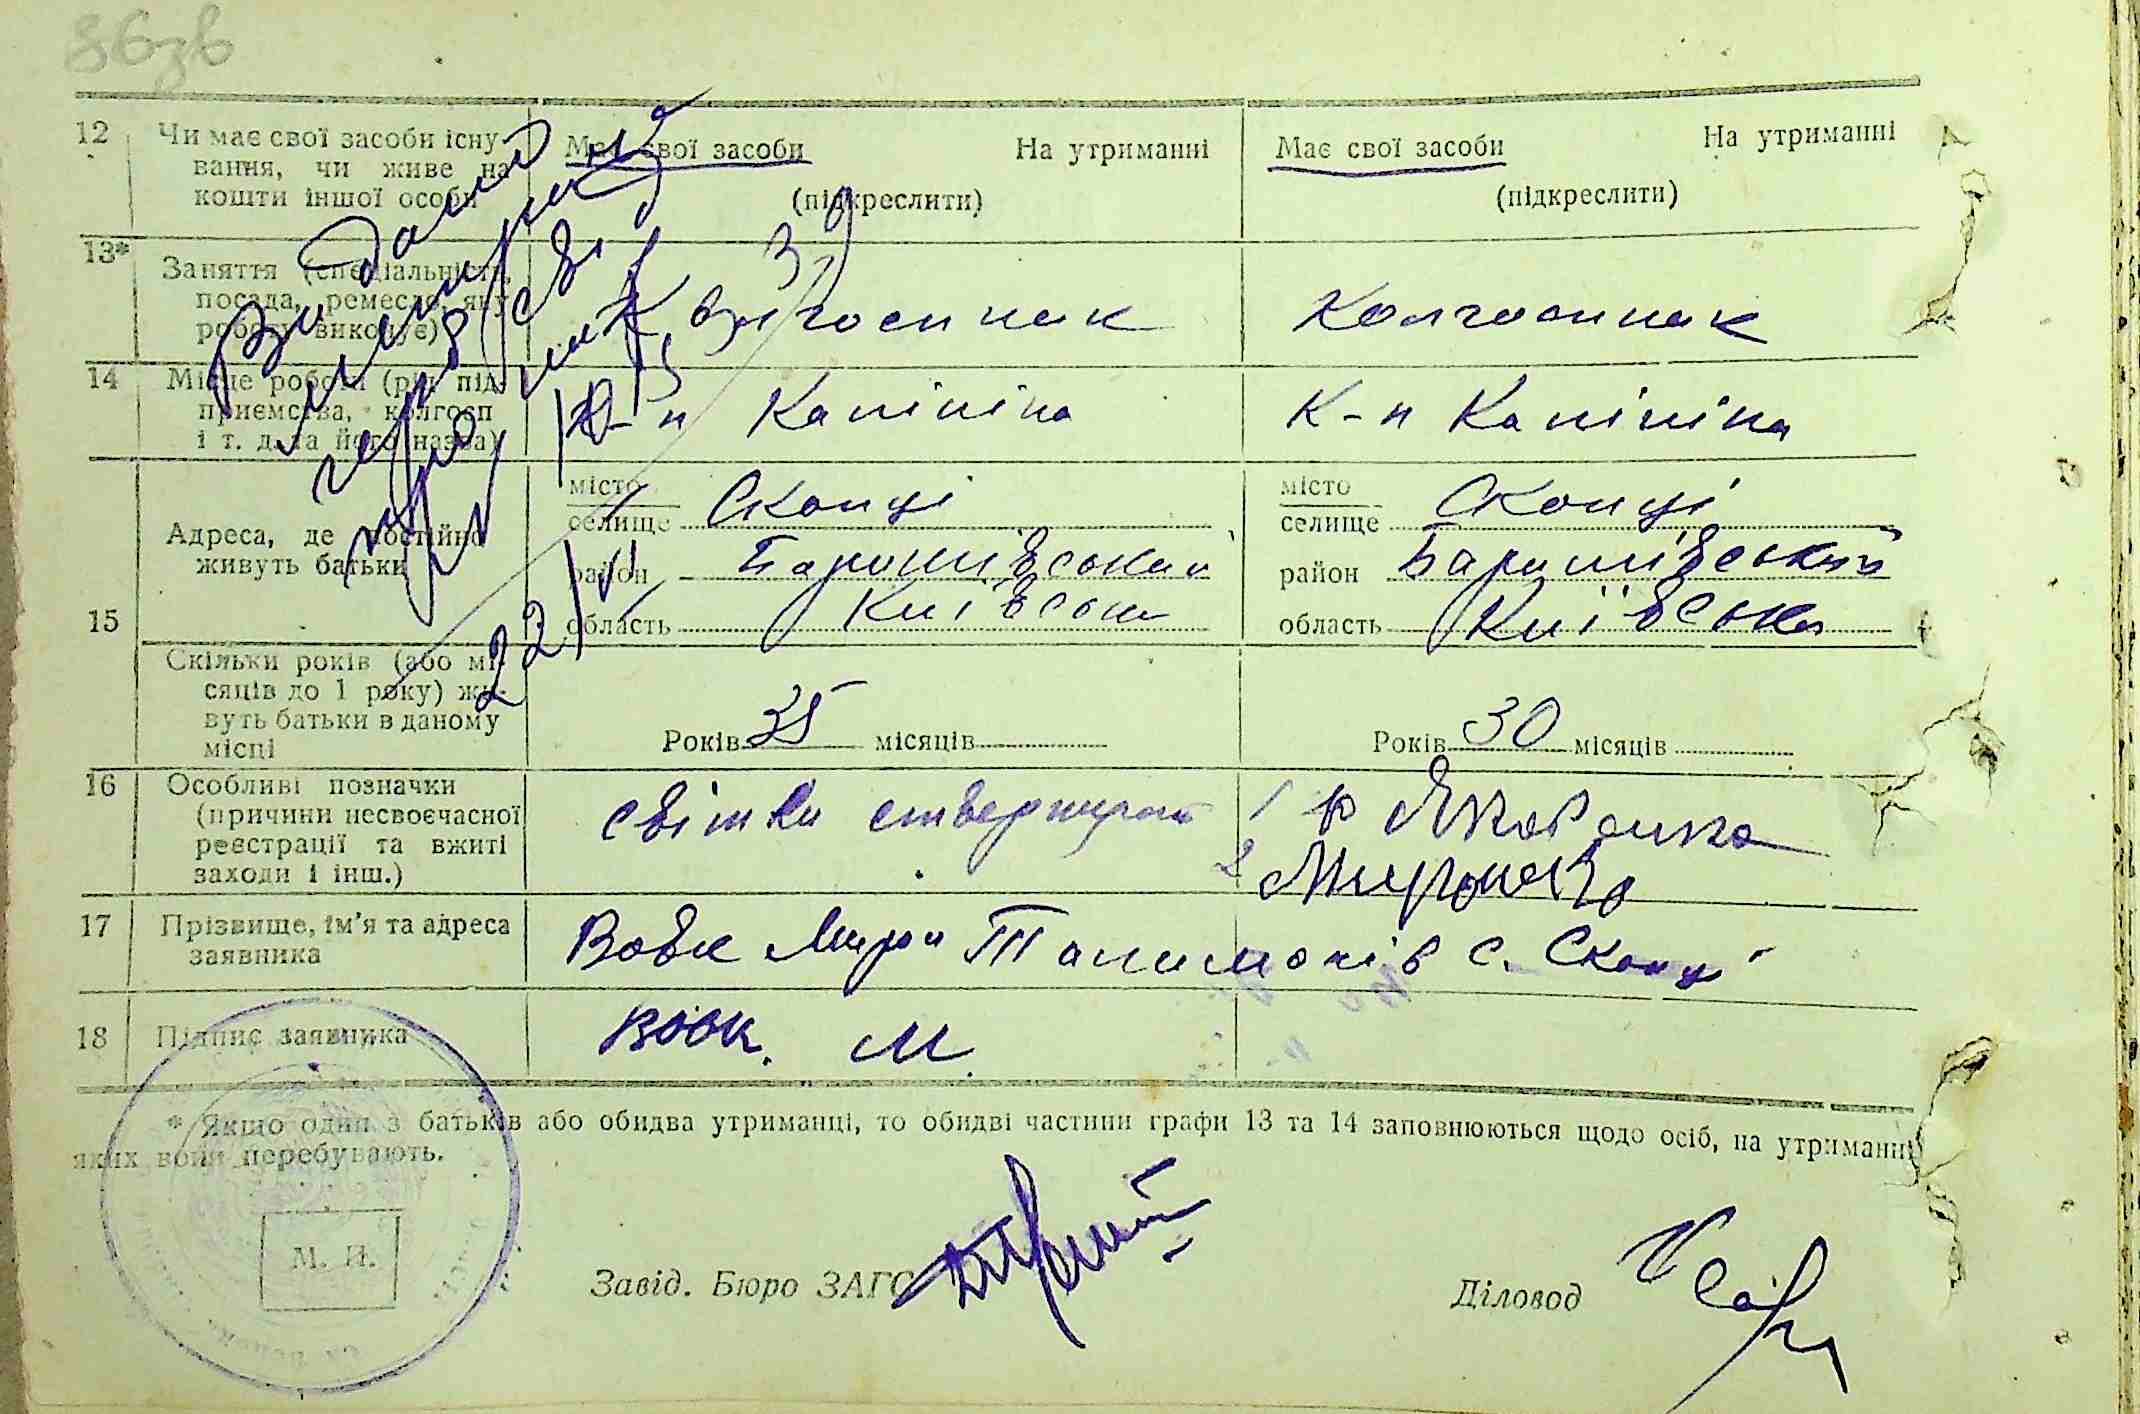 12 Чи має свої засоби існу-
вання, чи живе на
кошти іншої особи
Має свої засоби На утриманні
(підкреслити)
Має свої засоби На утриманні
(підкреслити)
13* Заняття (спеціальність,
посада, ремесло, яку
роботу виконує)
Колгоспник
Колгоспник
14 Місце роботи (рід під-
приємства, колгосп
і т. д. та його назва)
К-п Калініна
К-п Калініна
15 Адреса, де постійно
живуть батьки
місто
селище Скопці
район Баришівський
область Київська
місто
селище Скопці
район Баришівський
область Київська
Скільки років (або мі-
сяців до 1 року) жи-
вуть батьки в даному
місці
Років 35 місяців
Років 30 місяців
16 Особливі позначки
(причини несвоєчасної
реєстрації та вжиті
заходи і інш.)
свідки стверджують
1
2
17 Прізвище, ім'я та адреса
заявника
Вовк с. Скопці
18 Підпис заявника
Вовк. М.
* Якщо один з батьків або обидва утриманці, то обидві частини графи 13 та 14 заповнюються щодо осіб, на утриманні
яких вони перебувають.
М. П.
Завід. Бюро ЗАГС
Діловод
Виданий